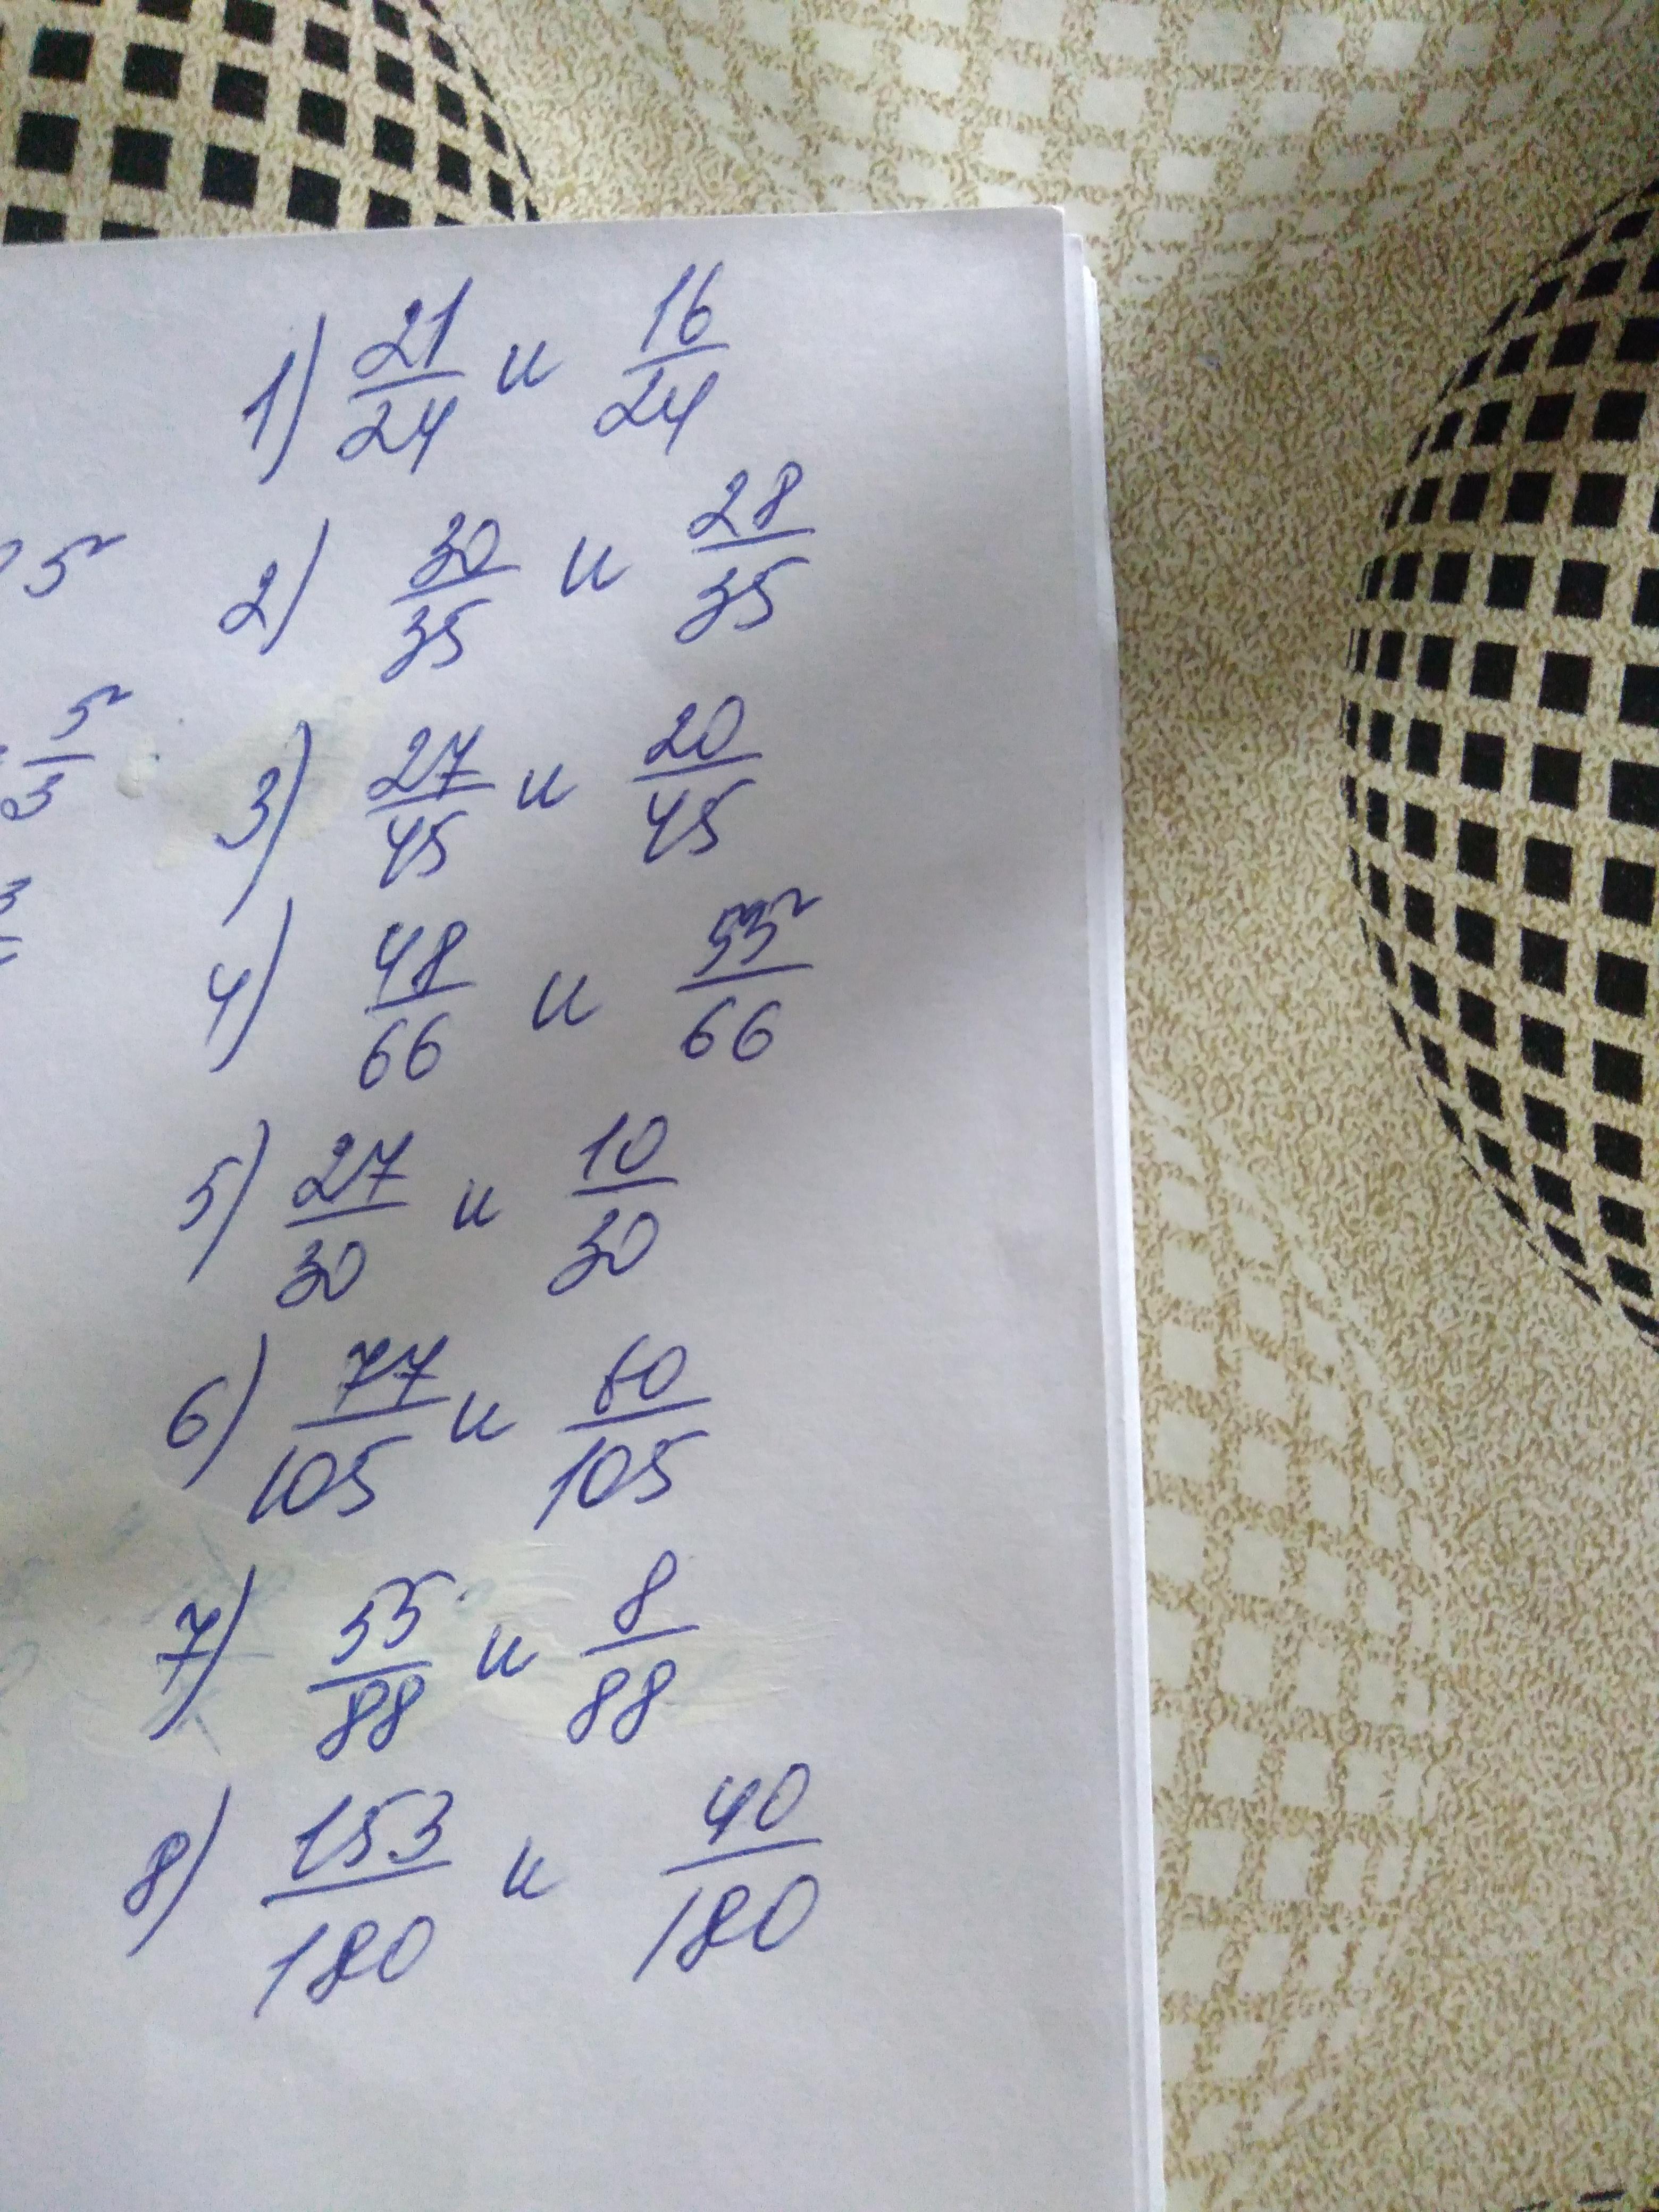 1) 21/24 и 16/24
5
2) 30/35 и 28/35
5/3
3) 27/45 и 20/45
4) 48/66 и 55/66
5) 27/30 и 10/30
6) 77/105 и 60/105
7) 55/88 и 8/88
8) 153/180 и 40/180